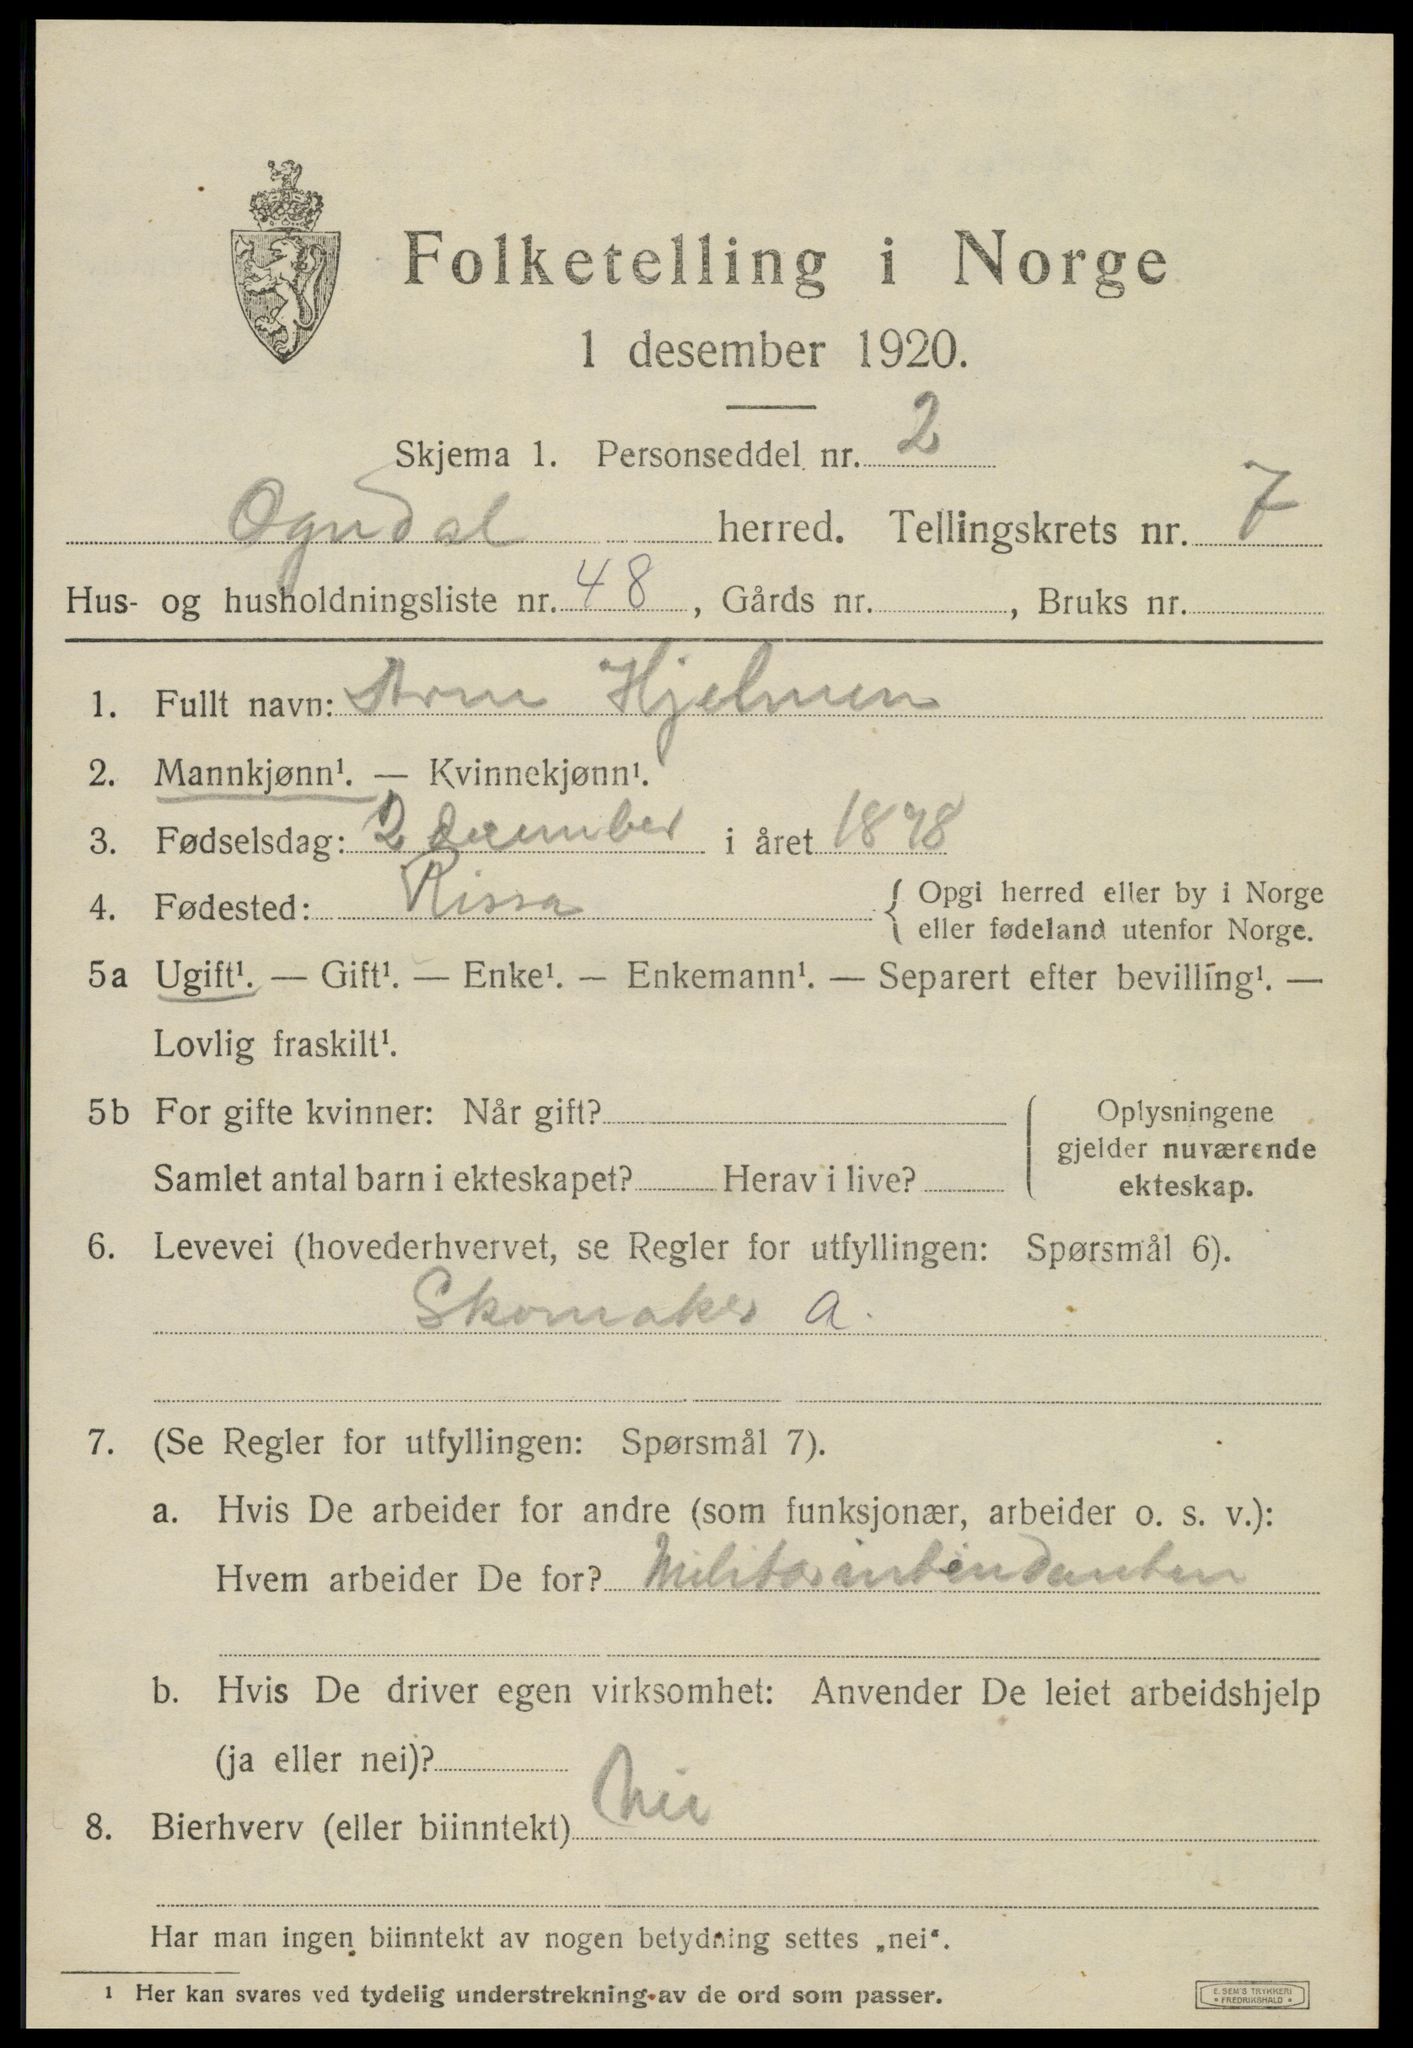 Folketelling i Norge
1 desember 1920.
Skjema 1. Personseddel nr. 2
Ogndal herred. Tellingskrets nr. 7
Hus- og husholdningsliste nr. 48, Gårds nr. , Bruks nr.
1. Fullt navn: Arne Hjelmen
2. Mannkjønn¹. — Kvinnekjønn¹.
3. Fødselsdag: 2 december i året 1898
4. Fødested: Rissa { Opgi herred eller by i Norge
eller fødeland utenfor Norge.
5a Ugift¹. — Gift¹. — Enke¹. — Enkemann¹. — Separert efter bevilling¹. —
Lovlig fraskilt¹.
5b For gifte kvinner: Når gift?
Samlet antal barn i ekteskapet? Herav i live?
Oplysningene
gjelder nuværende
ekteskap.
6. Levevei (hovederhvervet, se Regler for utfyllingen: Spørsmål 6).
Skomaker a.
7. (Se Regler for utfyllingen: Spørsmål 7).
a. Hvis De arbeider for andre (som funksjonær, arbeider o. s. v.):
Hvem arbeider De for? Militærintendanten
b. Hvis De driver egen virksomhet: Anvender De leiet arbeidshjelp
(ja eller nei)?
8. Bierhverv (eller biinntekt) Nei
Har man ingen biinntekt av nogen betydning settes „nei“.
1 Her kan svares ved tydelig understrekning av de ord som passer.
E. SEM'S TRYKKERI
FREDRIKSHALD